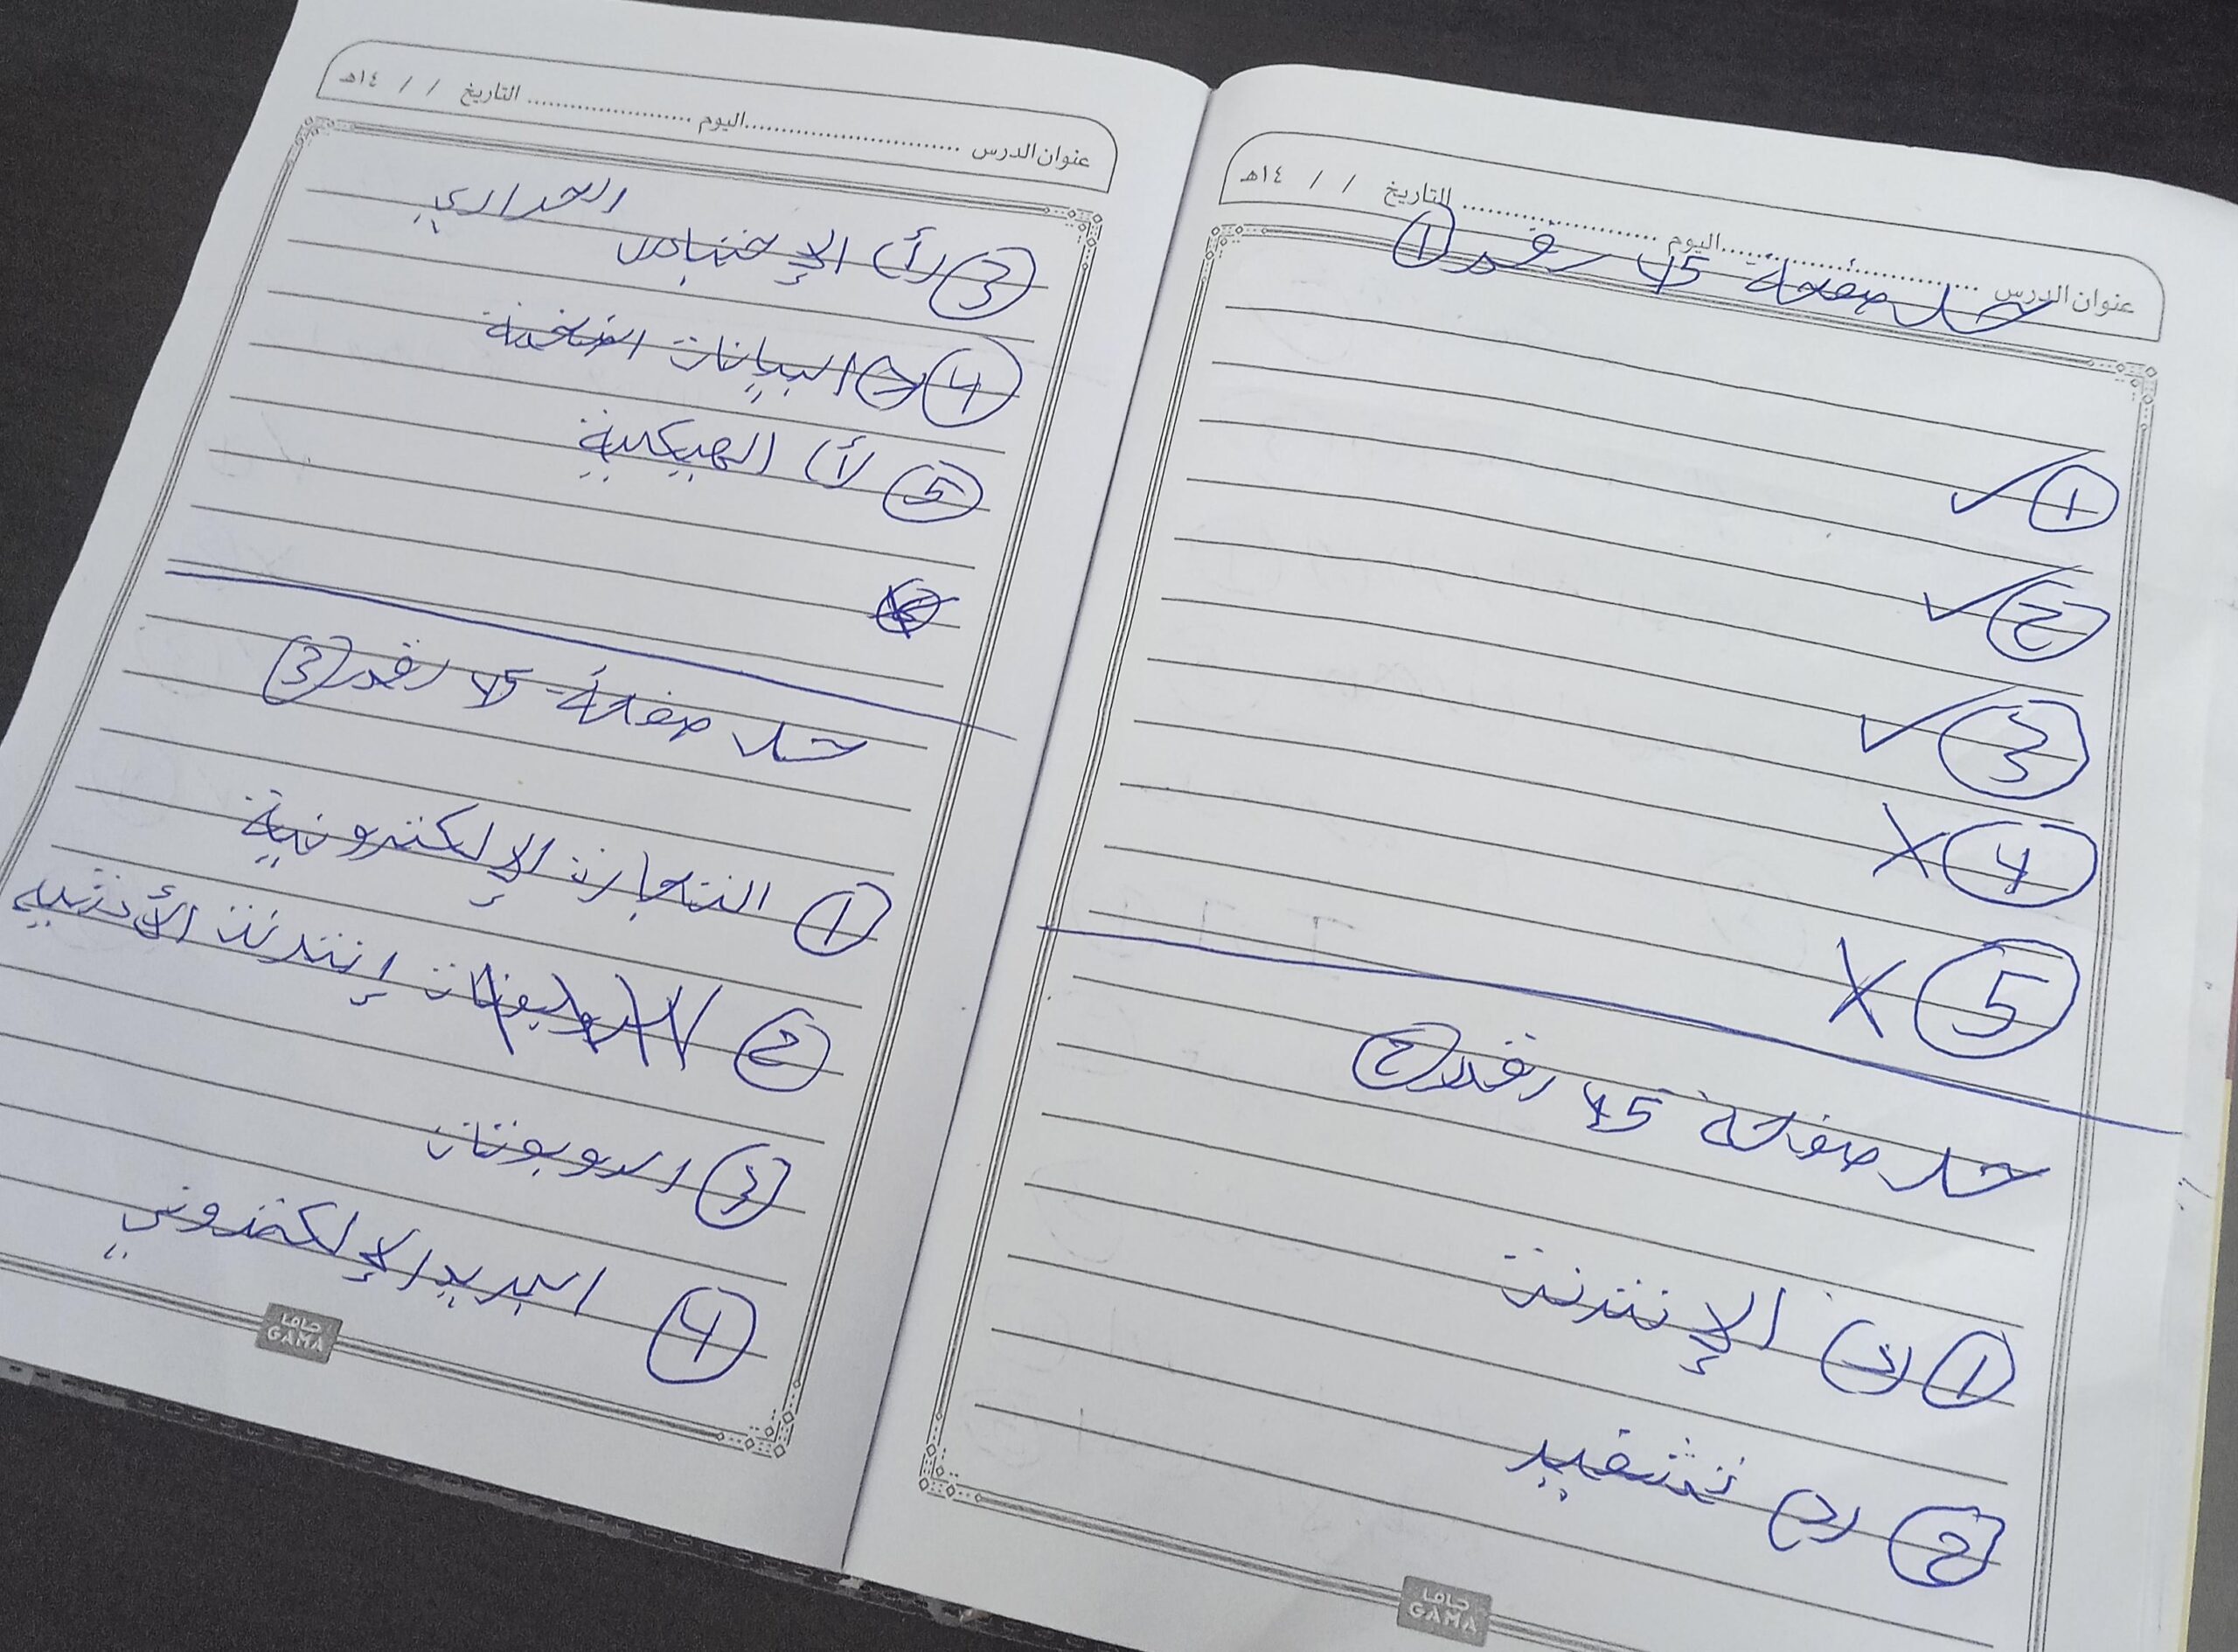 عنوان الدرس ........ اليوم ........ التاريخ / / ١٤هـ
حل صفحة 45 رقم ①
① ✓
② ✓
③ ✓
④ X
⑤ X
حل صفحة 45 رقم ②
① (د) الإنترنت
② (د) تشفير
جاما
GAMA
عنوان الدرس ........ اليوم ........ التاريخ / / ١٤هـ
③ (أ) الإحتباس الحراري
④ (ج) البيانات الضخمة
⑤ (أ) الهيكلية
حل صفحة 45 رقم ③
① التجارة الإلكترونية
② إنترنت الأشياء
③ الروبوتات
④ البريد الإلكتروني
جاما
GAMA